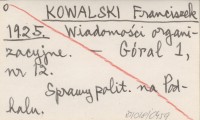 KOWALSKI Franciszek
1925. Wiadomości organi-
zacyjne. – Góral 1,
nr 12.
Sprawy polit. na Pod-
halu.